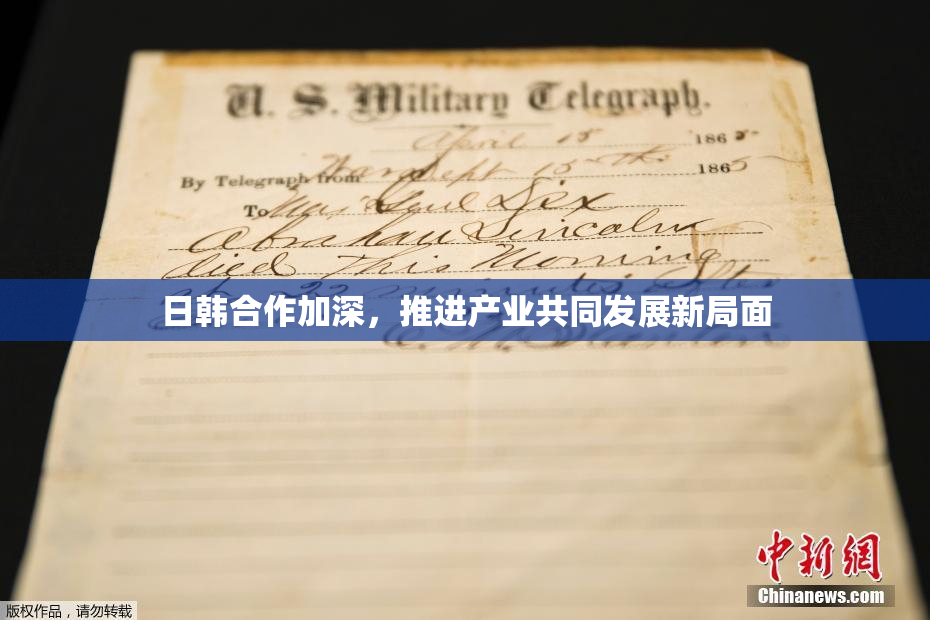 U. S. Military Telegraph.
April 15 1865
By Telegraph from War Dept 15th 1865
To Maj Genl Dix
Abraham Lincoln
died This Morning
at 22 minutes after
日韩合作加深，推进产业共同发展新局面
E. M. Stanton
中新网
Chinanews.com
版权作品，请勿转载